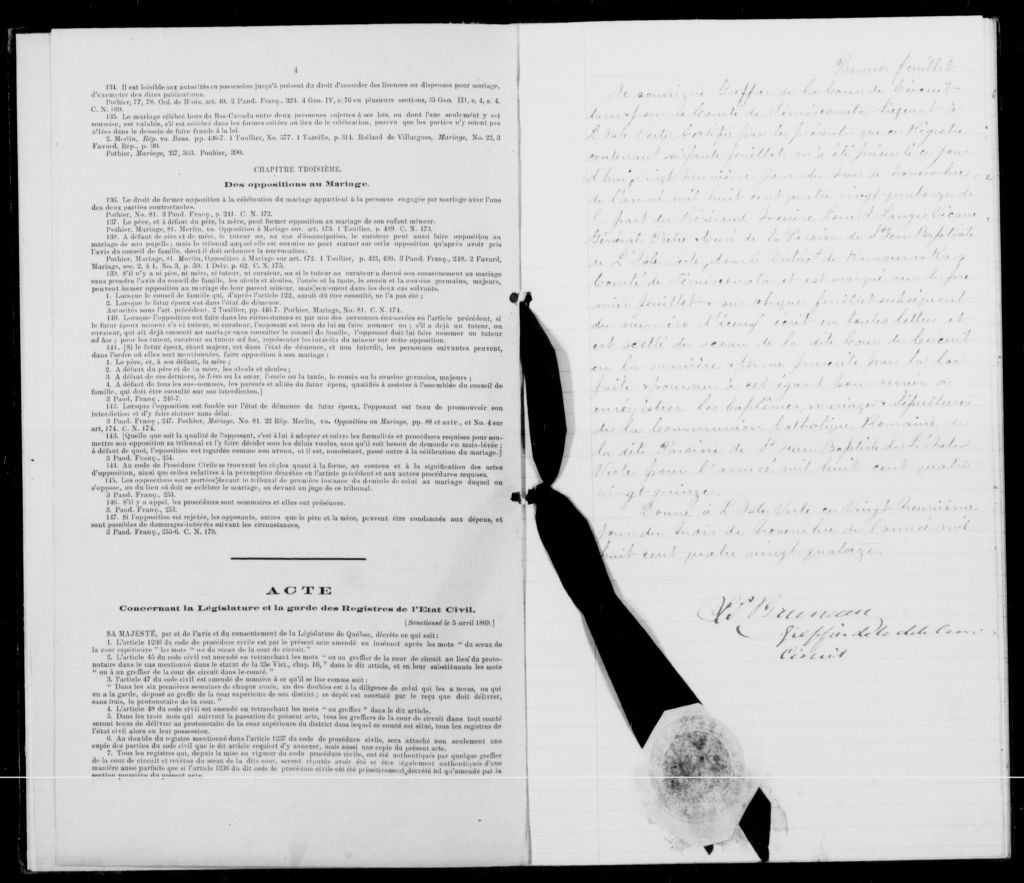 4
134. Il est loisible aux autorités en possession jusqu'à présent du droit d'accorder des licences ou dispenses pour mariage,
d'exempter des dites publications.
Pothier, 77, 78. Ord. de Blois, art. 40. 2 Pand. Franç. 324. 4 Geo. IV, c. 76 en plusieurs sections, 35 Geo. III, c, 4, s. 4,
C. N. 169.
135. Le mariage célébré hors du Bas-Canada entre deux personnes sujettes à ses lois, ou dont l'une seulement y est
soumise, est valable, s'il est célébré dans les formes usitées au lieu de la célébration, pourvu que les parties n'y soient pas
allées dans le dessein de faire fraude à la loi.
2. Merlin, Rép. vo. Bans. pp. 436-7. 1 Toullier, No. 577. 1 Vazeille, p. 314. Rolland de Villargues, Mariage, No. 22, 3
Favard, Rép., p. 39.
Pothier, Mariage, 327, 363. Pouhier, 390.
CHAPITRE TROISIÈME.
Des oppositions au Mariage.
136. Le droit de former opposition à la célébration du mariage appartient à la personne engagée par mariage avec l'une
des deux parties contractantes.
Pothier, No. 81. 3 Pand. Franç., p. 241. C. N. 172.
137. Le père, et à défaut du père, la mère, peut former opposition au mariage de son enfant mineur.
Pothier, Mariage, 81. Merlin, vo. Opposition à Mariage sur. art. 173. 1 Toullier, p. 489. C. N. 173.
138. A défaut de père et de mère, le tuteur ou, au cas d'émancipation, le curateur peut aussi faire opposition au
mariage de son pupille ; mais le tribunal auquel elle est soumise ne peut statuer sur cette opposition qu'après avoir pris
l'avis du conseil de famille, dont il doit ordonner la convocation.
Pothier, Mariage, 81. Merlin, Opposition à Mariage sur art. 172. 1 Toullier, p. 425, 490. 3 Pand. Franç., 248. 2 Favard,
Mariage, sec. 2, § 1, No. 3, p. 59. 1 Delv. p. 62. C. N. 175.
139. S'il n'y a ni père, ni mère, ni tuteur, ni curateur, ou si le tuteur ou curateur a donné son consentement au mariage
sans prendre l'avis du conseil de famille, les aïeuls et aïeules, l'oncle et la tante, le cousin et la cousine germains, majeurs,
peuvent former opposition au mariage de leur parent mineur, mais seulement dans les deux cas suivants.
1. Lorsque le conseil de famille qui, d'après l'article 122, aurait dû être consulté, ne l'a pas été ;
2. Lorsque le futur époux est dans l'état de démence.
Autorités sous l'art. précédent. 2 Toullier, pp. 446-7. Pothier, Mariage, No. 81. C. N. 174.
140. Lorsque l'opposition est faite dans les circonstances et par une des personnes énumérées en l'article précédent, si
le futur époux mineur n'a ni tuteur, ni curateur, l'opposant est tenu de lui en faire nommer un ; s'il a déjà un tuteur, ou
curateur, qui ait déjà consenti au mariage sans consulter le conseil de famille, l'opposant doit lui faire nommer un tuteur
ad hoc ; pour les tuteur, curateur ou tuteur ad hoc, représenter les intérêts du mineur sur cette opposition.
141. [Si le futur époux, étant majeur, est dans l'état de démence, et non interdit, les personnes suivantes peuvent,
dans l'ordre où elles sont mentionnées, faire opposition à son mariage :
1. Le père, et, à son défaut, la mère ;
2. A défaut du père et de la mère, les aïeuls et aïeules ;
3. A défaut de ces derniers, le frère ou la sœur, l'oncle ou la tante, le cousin ou la cousine germains, majeurs ;
4. A défaut de tous les sus-nommés, les parents et alliés du futur époux, qualifiés à assister à l'assemblée du conseil de
famille, qui doit être consulté sur son interdiction.]
3 Pand. Franç., 246-7.
142. Lorsque l'opposition est fondée sur l'état de démence du futur époux, l'opposant est tenu de promouvoir son
interdiction et d'y faire statuer sans délai.
3 Pand. Franç., 247. Pothier, Mariage, No. 81. 22 Rép. Merlin, vo. Opposition au Mariage, pp. 88 et suiv., et No. 4 sur
art, 174. C. N. 174.
143. [Quelle que soit la qualité de l'opposant, c'est à lui à adopter et suivre les formalités et procédures requises pour sou-
mettre son opposition au tribunal et l'y faire décider sous les délais voulus, sans qu'il soit besoin de demande en main-levée ;
à défaut de quoi, l'opposition est regardée comme non avenu, et il est, nonobstant, passé outre à la célébration du mariage.]
3 Pand. Franç., 254.
144. Au code de Procédure Civile se trouvent les règles quant à la forme, au contenu et à la signification des actes
d'opposition, ainsi que celles relatives à la péremption décrétée en l'article précédent et aux autres procédures requises.
145. Les oppositions sont portées devant le tribunal de première instance du domicile de celui au mariage duquel on
s'oppose, ou du lieu où doit se célébrer le mariage, ou devant un juge de ce tribunal.
3 Pand. Franç., 253.
146. S'il y a appel, les procédures sont sommaires et elles ont préséance.
3. Pand. Franç., 253.
147. Si l'opposition est rejetée, les opposants, autres que le père et la mère, peuvent être condamnés aux dépens, et
sont passibles de dommages-intérêts suivant les circonstances,
3 Pand. Franç., 255-6. C. N. 179.
ACTE
Concernant la Législature et la garde des Registres de l'Etat Civil.
[Sanctionné le 5 avril 1869.]
SA MAJESTÉ, par et de l'avis et du consentement de la Législature de Québec, décrète ce qui suit :
1. L'article 1236 du code de procédure civile est par le présent acte amendé en insérant après les mots " du sceau de
la cour supérieure " les mots " ou du sceau de la cour de circuit."
2. L'article 45 du code civil est amendé en retranchant les mots " ou au greffier de la cour de circuit au lieu du proto-
notaire dans le cas mentionné dans le statut de la 25e Vict., chap. 16, " dans le dit article, et en leur substituants les mots
" ou à un greffier de la cour de circuit dans le comté. "
3. l'article 47 du code civil est amendé de manière à ce qu'il se lise comme suit :
" Dans les six premières semaines de chaque année, un des doubles est à la diligence de celui qui les a tenus, ou qui
en a la garde, déposé au greffe de la cour supérieure de son district ; ce dépôt est constaté par le reçu que doit délivrer,
sans frais, le protonotaire de la cour. "
4. L'article 48 du code civil est amendé en retranchant les mots " ou greffier " dans le dit article.
5. Dans les trois mois qui suivront la passation du présent acte, tous les greffiers de la cour de circuit dans tout comté
seront tenus de délivrer au protonotaire de la cour supérieure du district dans lequel ce comté est situé, tous les registres de
l'état civil alors en leur possession.
6. Au double du registre mentionné dans l'article 1237 du code de procédure civile, sera attaché non seulement une
copie des parties du code civil que le dit article requiert d'y annexer, mais aussi une copie du présent acte.
7. Tous les registres qui, depuis la mise en vigueur du code procédure civile, ont été authentiqués par quelque greffier
de la cour de circuit et revêtus du sceau de la dite cour, seront réputés avoir été et être légalement authentiqués d'une
manière aussi parfaite que si l'article 1236 du dit code de procédure civile eût été primitivement décrété tel qu'amendé par la
section première du présent acte.
Premier feuillet
Je soussigné Greffier de la Cour de Circuit
dans & pour le Comté de Témiscouata siégeant à
L'Isle Verte Certifie par la présente que ce Régistre
contenant soixante feuillets m'a été présenté ce jour
d'hui, vingt neuvième jour du mois de novembre
de l'année mil huit cent quatre vingt quatorze de
la part du Révérend Messire Louis J. Langis Vicaire
Général, Prêtre & Curé de la Paroisse de St Jean Baptiste
de L'Isle Verte, dans le District de Kamouraska,
Comté de Témiscouata et est marqué sur le pre-
mier feuillet & sur chaque feuillet subséquent
du numéro d'iceux écrit en toutes lettres et
est scellé du sceau de la dite Cour de Circuit
en la manière & forme prescrite par la loi
faite & pourvue à cet égard pour servir à
enrégistrer les baptêmes, mariages & sépultures
de la Communion Catholique Romaine de
la dite Paroisse de St Jean Baptiste de L'Isle
Verte pour l'année mil huit cent quatre
vingt quinze.
Donné à L'Isle Verte ce Vingt Neuvième
jour du mois de Novembre de l'année mil
huit cent quatre vingt quatorze.
greffier de la dite Cour
Circuit